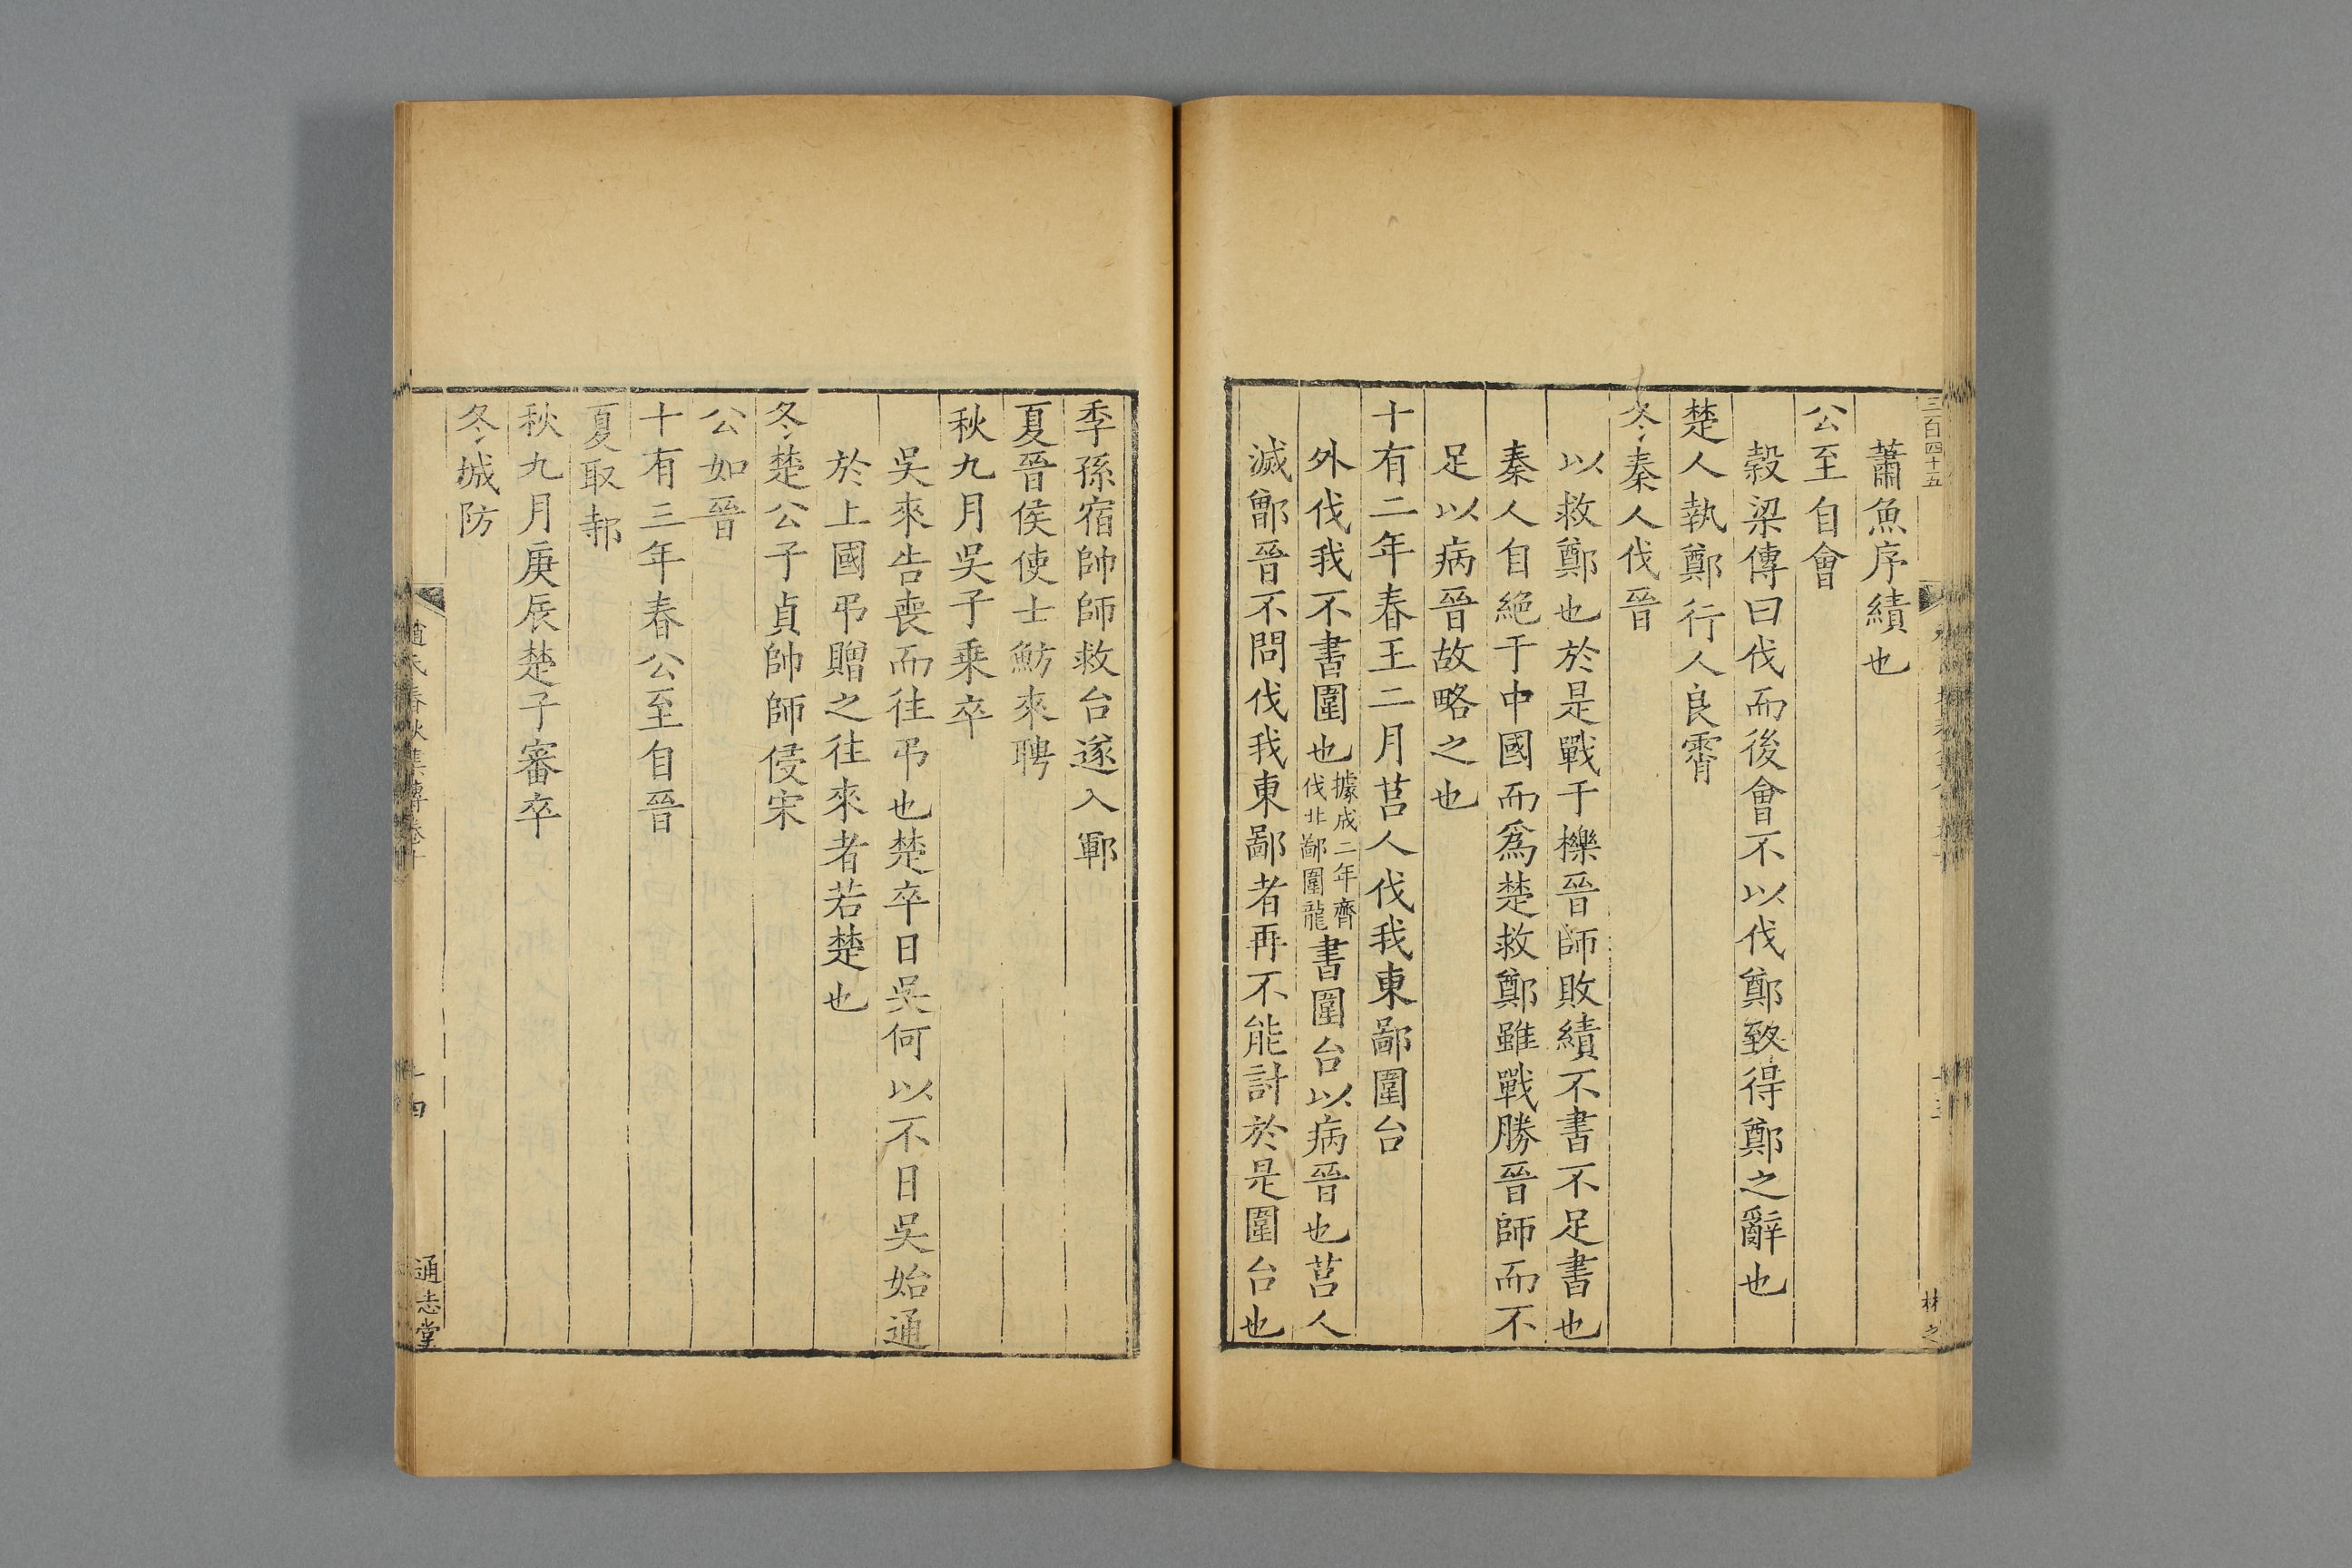 三百四十五
林之
蕭魚序績也
公至自會
榖梁傳曰伐而後會不以伐鄭致得鄭之辭也
楚人執鄭行人良霄
冬秦人伐晉
以救鄭也於是戰于櫟晉師敗績不書不足書也
秦人自絕于中國而爲楚救鄭雖戰勝晉師而不
足以病晉故略之也
十有二年春王二月莒人伐我東鄙圍台
外伐我不書圍也據成二年齊伐北鄙圍龍書圍台以病晉也莒人
滅鄫晉不問伐我東鄙者再不能討於是圍台也
季孫宿帥師救台遂入鄆
夏晉侯使士魴來聘
秋九月吳子乗卒
吳來告喪而往弔也楚卒日吳何以不日吳始通
於上國弔贈之往來者若楚也
冬楚公子貞帥師侵宋
公如晉
十有三年春公至自晉
夏取邿
秋九月庚辰楚子審卒
冬城防
趙氏春秋集傳卷十
十四
通志堂